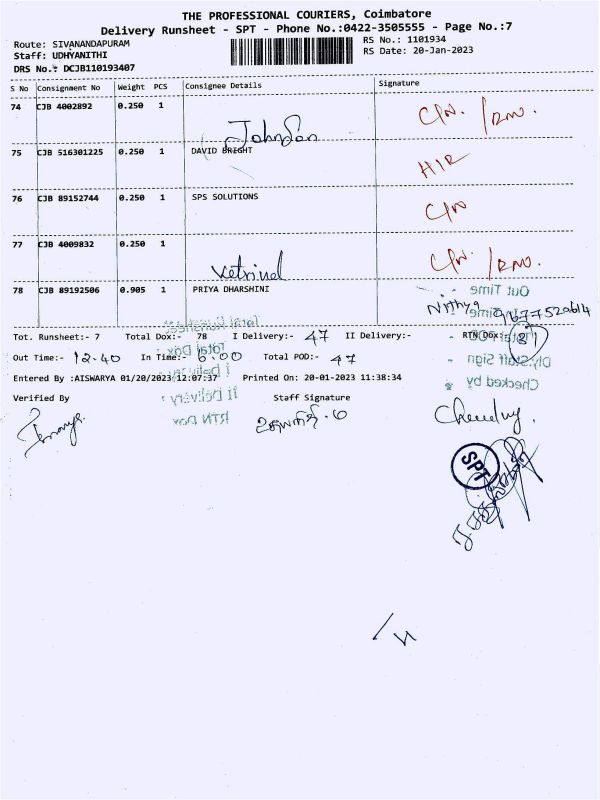 THE PROFESSIONAL COURIERS, Coimbatore
Delivery Runsheet - SPT - Phone No.:0422-3505555 - Page No.:7
Route: SIVANANDAPURAM
RS No.: 1101934
Staff: UDHYANITHI
RS Date: 20-Jan-2023
DRS No.: DCJB110193407
S No Consignment No Weight PCS Consignee Details Signature
74 CJB 4002892 0.250 1 Johnson C/N. /RNO.
75 CJB 516301225 0.250 1 DAVID BRIGHT H/R
76 CJB 89152744 0.250 1 SPS SOLUTIONS C/N
77 CJB 4009832 0.250 1 Vetrivel C/N. /RNO.
78 CJB 89192506 0.905 1 PRIYA DHARSHINI Nithya 9677520614
Out Time
Total Runsheet
Tot. Runsheet:- 7 Total Dox:- 78 I Delivery:- 47 II Delivery:- RTN Dox: 31
Total Dox
Out Time:- 12.40 In Time:- 6.00 Total POD:- 47
Dly.Staff Sign
I Delivery
Entered By :AISWARYA 01/20/2023 12:07:37 Printed On: 20-01-2023 11:38:34
Checked by
II Delivery
Verified By Staff Signature
RTN Dox
SPT